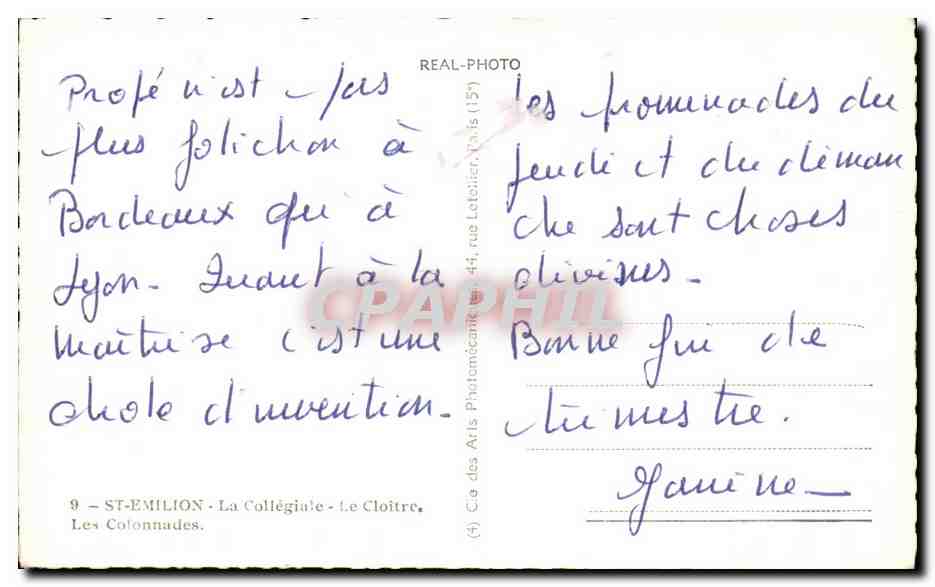 REAL-PHOTO
Propé n'est pas
plus folichon à
Bordeaux qu'à
Lyon. Quant à la
maîtrise c'est une
drole d'invention.
9 - ST-EMILION - La Collégiale - Le Cloître.
Les Colonnades.
(4) Cie des Arts Photomécaniques, 44, rue Letellier, Paris (15e)
CPAPHIL
Les promenades du
jeudi et du diman
che sont choses
divines.
Bonne fin de
trimestre.
Janine